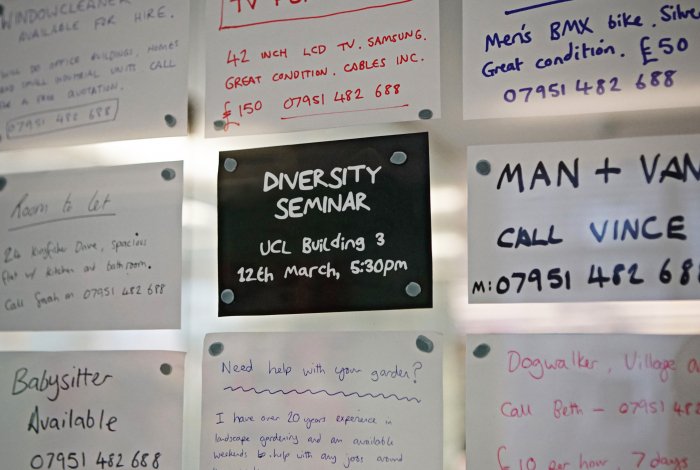 WINDOWCLEANER
AVAILABLE FOR HIRE.
WILL DO OFFICE BUILDINGS, HOMES
AND SMALL INDUSTRIAL UNITS CALL
FOR A FREE QUOTATION.
07951 482 688
42 INCH LCD TV. SAMSUNG.
GREAT CONDITION. CABLES INC.
£150 07951 482 688
Men's BMX bike. Silve
Great condition. £50
07951 482 688
Room to let
24 Kingfisher Drive, spacious
flat w/ kitchen and bathroom.
Call Sarah on 07951 482 688
DIVERSITY
SEMINAR
UCL Building 3
12th March, 5:30pm
MAN + VAN
CALL VINCE
M: 07951 482 688
Babysitter
Available
07951 482 688
Need help with your garden?
I have over 20 years experience in
landscape gardening and am available
weekends to help with any jobs around
Dogwalker, Village a
Call Beth - 07951 482
£10 per hour 7 days